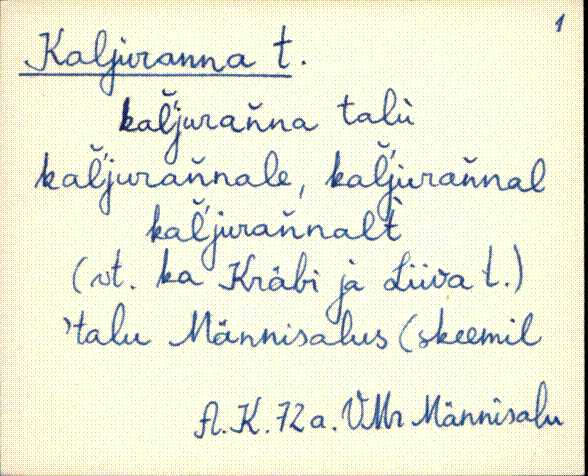 1
Kaljuranna t.
kaľjurañna talù
kaľjurañnale, kaľjurañnal
kaľjurañnalt̀
(vt. ka Kräbi ja Liiva t.)
'talu Männisalus (skeemil
A.K. 72 a. VMr Männisalu